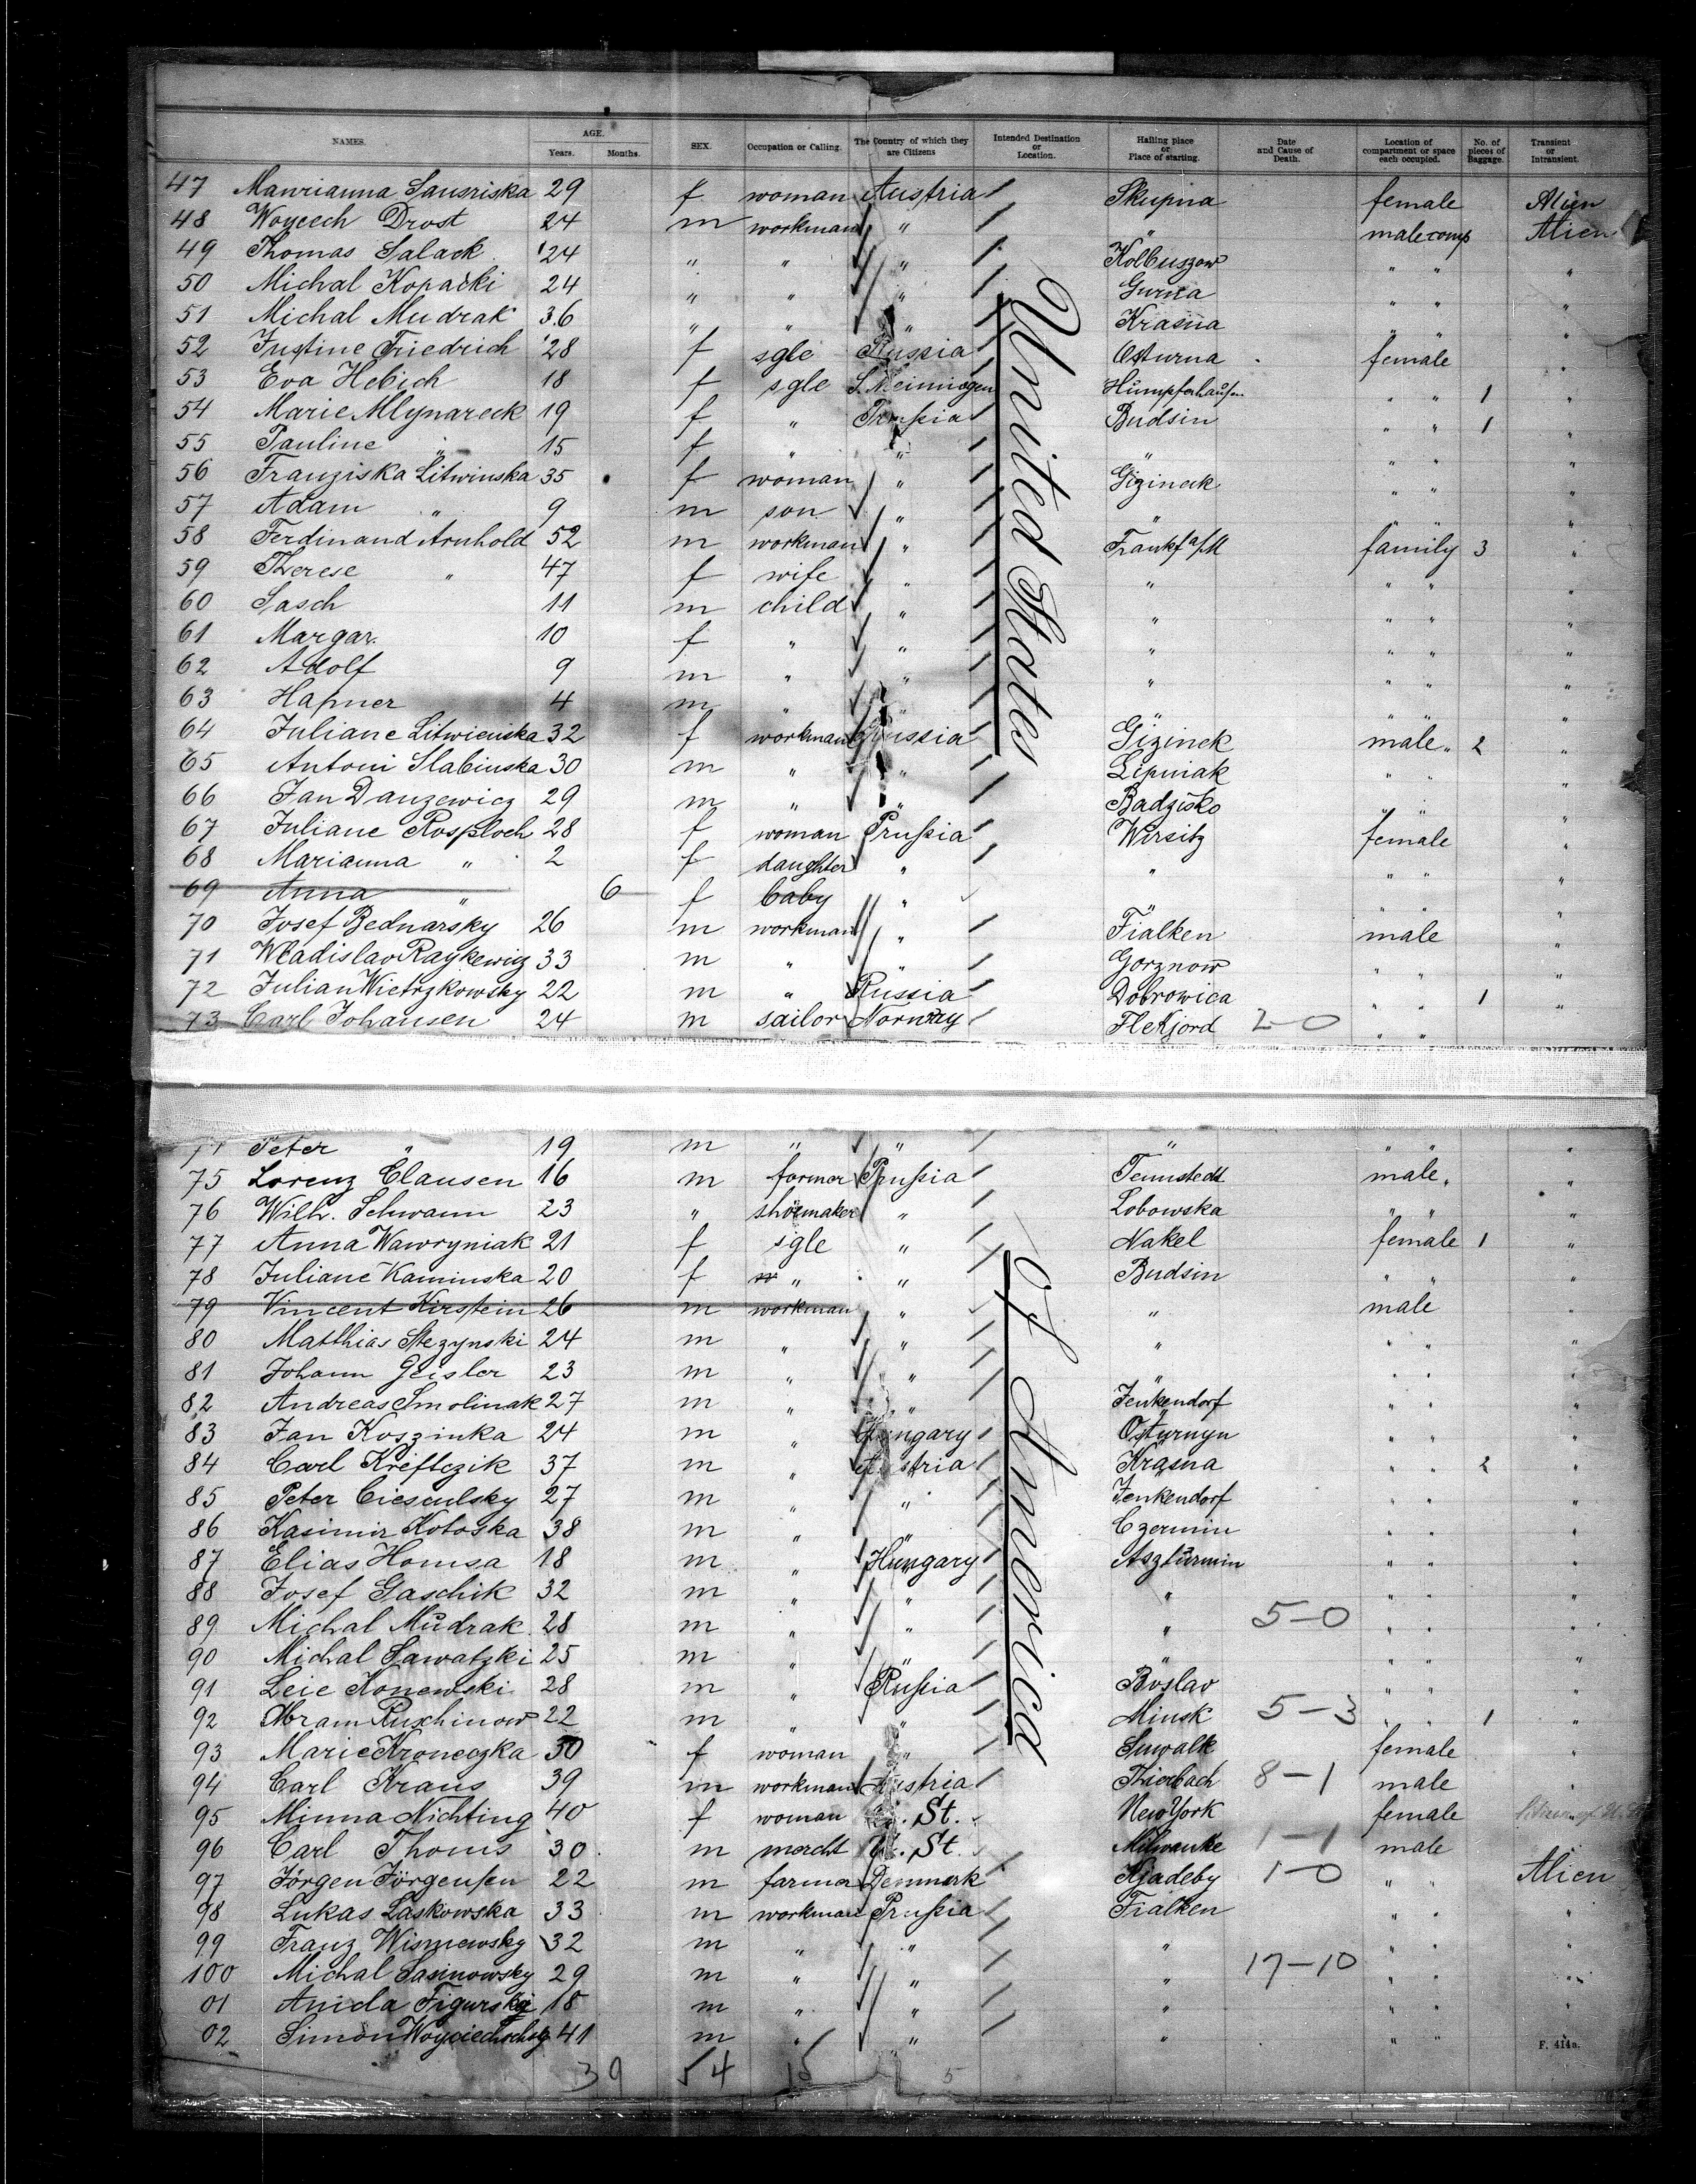 NAMES. AGE. Years. Months. SEX. Occupation or Calling. The Country of which they are Citizens Intended Destination or Location. Hailing place or Place of starting. Date and Cause of Death. Location of compartment or space each occupied. No. of pieces of Baggage. Transient or Intransient.
47 Maurianna 29 f woman Austria Skupna female Alien
48 Woycech Drost 24 m workman " " male comp Alien
49 Thomas Salack 24 " " " Kolbuszow " " "
50 Michal Kopacki 24 " " " Gurna " " "
51 Michal Mudrak 36 " " " Krasna " " "
52 Justine Friedrich 28 f sgle Russia Osturna female "
53 Eva Hebich 18 f sgle S. Meiningen Humpferhausen " " 1 "
54 Marie Mlynareck 19 f " Prussia Budsin " " 1 "
55 Pauline " 15 f " " " " " "
56 Franziska Litwinska 35 f woman " Gizineck " " "
57 Adam " 9 m son " " " " "
58 Ferdinand Arnhold 52 m workman " Frankf a/M family 3 "
59 Therese " 47 f wife " " " " "
60 Sasch 11 m child " " " " "
61 Margar. 10 f " " " " " "
62 Adolf 9 m " " " " " "
63 Hapner 4 m " " " " " "
64 Juliane Litwinska 32 f workman Russia Gizinek male " 2 "
65 Antoni Slabinska 30 m " " Lipniak " " "
66 Jan Danzewicz 29 m " " Badzisko " " "
67 Juliane Rosploch 28 f woman Prußia Wirsitz female "
68 Marianna " 2 f daughter " " " " "
69 Anna " 6 f baby " " " " "
70 Josef Bednarsky 26 m workman " Fialken male "
71 Wladislav Raykewicz 33 m " " Gorznow " " "
72 Julian Wietrzkowsky 22 m " Russia Dobrowica " " 1 "
73 Carl Johansen 24 m sailor Norway Flekjord 2-0 " "
United States
Peter " 19 m " " " " " "
75 Lorenz Clausen 16 m farmer Prußia Tennstedt male " "
76 Wilh. Schwann 23 " shoemaker " Lobowska " " "
77 Anna Wawryniak 21 f sgle " Nakel female 1 "
78 Juliane Kaminska 20 f " " Budsin " " "
79 Vincent Kirstein 26 m workman " " male "
80 Matthias Stezynski 24 m " " " " " "
81 Johann Geisler 23 m " " " " " "
82 Andreas Smolinak 27 m " " Jenkendorf " " "
83 Jan Koszinka 24 m " Hungary Osturnyn " " "
84 Carl Kreftczik 37 m " Austria Krasna " " 2 "
85 Peter Ciesculsky 27 m " " Jenkendorf " " "
86 Kasimir Kotoska 38 m " " Czermin " " "
87 Elias Homsa 18 m " Hungary Aszturmin " " "
88 Josef Gaschik 32 m " " " " " "
89 Michal Mudrak 28 m " " " 5-0 " " "
90 Michal Sawatzki 25 m " " " " " "
91 Leie Konewski 28 m " Rußia Boslav " " "
92 Abram Ruschinow 22 m " " Minsk 5-3 " " 1 "
93 Marie Kroneczka 30 f woman " Suwalk female "
94 Carl Kraus 39 m workman Austria Thierbach 8-1 male "
95 Minna Nichting 40 f woman U. St. New York female
96 Carl Thoms 30 m mercht U. St. Milwauke 1-1 male
97 Jörgen Jörgensen 22 m farmer Denmark Kjadeby 1-0 " " Alien
98 Lukas Laskowska 33 m workman Prußia Fialken " " "
99 Franz Wismewsky 32 m " " " " " "
100 Michal Sasinowsky 29 m " " " 17-10 " " "
01 Anida Figursky 18 m " " " " " "
02 Simon 41 m " " " " "
of America
F. 414a.
39 54 15 5